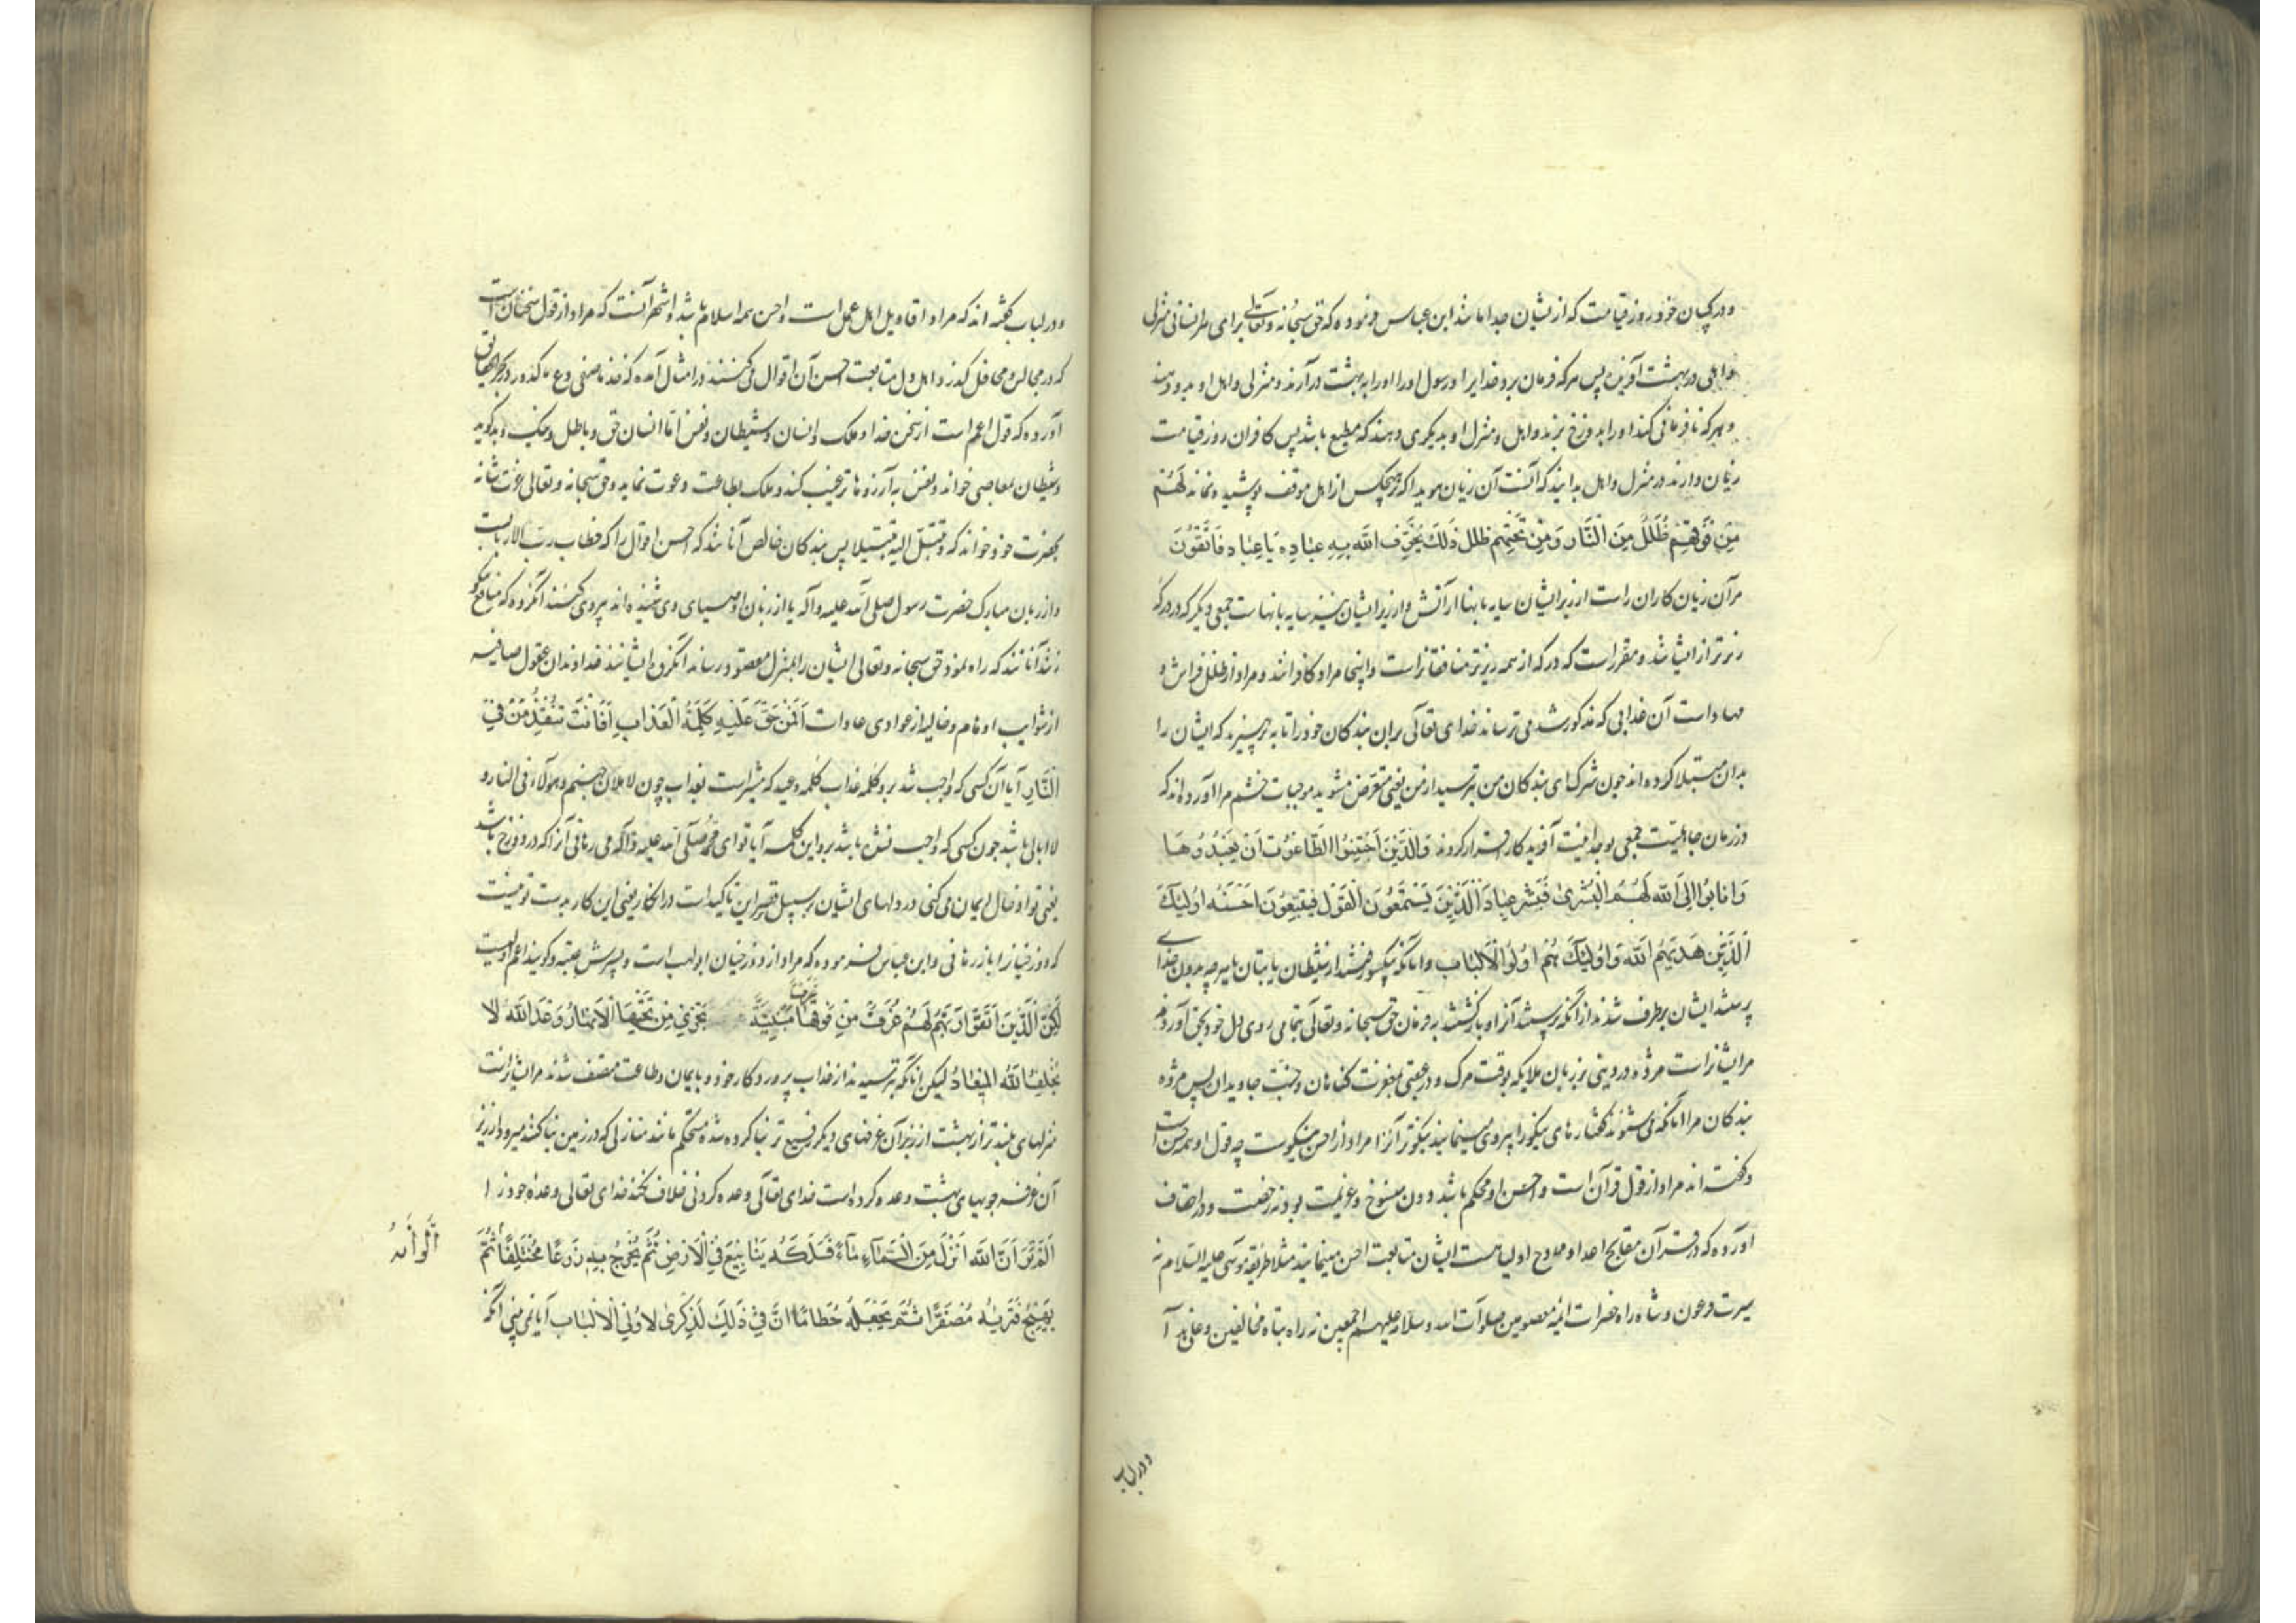 و در کسان خود روز قیامت که از ایشان جدا باشند ابن عباس فرموده که حق سبحانه و تعالی برای هر انسانی منزلی
و اهلی در بهشت آفریده پس هر که فرمان برد خدایرا و رسول او را او را به بهشت درآرند و منزلی و اهل او بدو دهند
و هر که نافرمانی کند او را بدوزخ برند و اهل و منزل او بدیگری دهند که مطیع باشد پس کافران روز قیامت
زیان دارند در منزل و اهل بدانید که آنست آن زیان هویدا که بر هیچکس از اهل موقف پوشیده نماند لَهُمْ
مِن فَوْقِهِمْ ظُلَلٌ مِنَ النَّارِ وَمِنْ تَحْتِهِمْ ظلل ذَلِكَ يُخَوِّفُ اللَّه بِهِ عِبَادِه يَا عِبَادِ فَاتَّقُونَ
مر آن زیان کاران راست از زبر ایشان سایه بانها از آتش و از زیر ایشان نیز سایه بانهاست جمعی دیگر که در درکهٔ
زیرتر از ایشانند و مقرر است که درکه از همه زیرتر منافقانراست و اینجا مراد کافرانند و مراد از ظلل فراش و
مهاد است آن عذابی که مذکور شد می ترساند خدای تعالی بران بندگان خود را تا بپرهیزند که ایشان را
بدان مبتلا کرده اند چون شرک ای بندگان من بترسید از من یعنی متعرض مشوید موجبات خشم مرا آورده اند که
در زمان جاهلیت جمعی بوحدانیت آفریدکار اقرار کردند وَالَّذِينَ اجْتَنَبُوا الطَّاغُوتَ أَنْ يَعْبُدُوهَا
وَأَنَابُوا إِلَى اللَّه لَهُمُ الْبُشْرَى فَبَشِّرْ عِبَادِ الَّذِينَ يَسْتَمِعُونَ الْقَوْلَ فَيَتَّبِعُونَ أَحْسَنَهُ أُولَئِكَ
الَّذِينَ هَدَيهُمُ اللَّه وَأُولَئِكَ هُمْ أُولُو الْأَلْبَابِ و آنانکه یکسو رفتند از شیطان یا بتان یا هر چه بدون خدای
پرستند ایشان برطرف شدند از آنکه پرستند آنرا و بازگشتند به فرمان حق سبحانه و تعالی بتمامی روی دل خود بحق آوردند
مر ایشانراست مژده در دنیی بر زبان ملایکه بوقت مرگ و در عقبی بمغفرت گناهان و جنت جاویدان پس مژده ده
بندگان مرا آنانکه می شنوند گفتارهای نیکو را پیروی مینمایند نیکوتر آنرا مراد از احسن نیکوست چه قول او همه حسن است
و گفته اند مراد از قول قرآن است و احسن او محکم باشد دون منسوخ و عزیمت بود نه رخصت و در احقاف
آورده که در قرآن مقابح اعدا و ممادح اولیا هست ایشان متابعت احسن مینمایند مثلا طریقه موسی علیه السلام نه
سیرت فرعون و شاه راه حضرات ائمه معصومین صلوات الله و سلامه علیهم اجمعین نه راه تباه مخالفین
و در لباب
و در لباب گفته اند که مراد اقاویل اهل عمل است و احسن همه اسلام باشد و اشهر آنست که مراد از قول سخنان است
که در مجالس و محافل گذرد و اهل دل متابعت احسن آن اقوال می کنند و در امثال آمده که خذ ما صفی و دع ما کدر و در بحر الحقایق
آورده که قول اعم است از سخن خدا و ملک و انسان و شیطان و نفس اما انسان حق و باطل و نیک و بد گوید
و شیطان بمعاصی خواند و نفس به آرزوها ترغیب کند و ملک بطاعت دعوت نماید و حق سبحانه و تعالی عزت شانه
بحضرت خود خواند که و تبتل الیه تبتیلا پس بندگان خالص آنانند که احسن اقوال را که خطاب رب الارباب است
و از زبان مبارک حضرت رسول صلی الله علیه و آله یا از زبان اوصیای وی شنیده اند پیروی کنند آنگروه
آنانند که راه نمود حق سبحانه و تعالی ایشان را بمنزل مقصود رساند آنگروه ایشانند خداوندان عقول صافیه
از شوایب اوهام و خالیه از عوادی عادات أَفَمَنْ حَقَّ عَلَيْهِ كَلِمَةُ الْعَذَابِ أَفَأَنْتَ تُنْقِذُ مَنْ فِي
النَّارِ آیا آن کسی که واجب شد برو کلمه عذاب کلمه وعید که مشیر است بعذاب چون لاملان جهنم و هولاء فی النار و
لا ابالی باشد چون کسی که واجب نشده باشد برو این کلمه آیا تو ای محمد صلی الله علیه و آله می رهانی آنرا که در دوزخ باشد
یعنی تو ادخال ایمان می کنی در دلهای ایشان بر سبیل قصر این تاکید است در انکار یعنی این کار بدست تو نیست
که دوزخیانرا باز رهانی و ابن عباس فرموده که مراد از دوزخیان ابو لهب است و پسرش عتبه و گویند اعم اولیست
لَكِنِ الَّذِينَ اتَّقَوْا رَبَّهُمْ لَهُمْ غُرَفٌ مِنْ فَوْقِهَا غرف مَبْنِيَّةٌ تَجْرِي مِن تَحْتِهَا الْأَنْهَارُ وَعْدَ اللَّه لَا
يُخْلِفُ اللَّه الْمِيعَادَ لیکن آنانکه بترسیدند از عذاب پروردگار خود و بایمان و طاعت متصف شدند مر ایشانراست
منزلهای بلندتر از بهشت از زبر آن غرفهای دیگر رفیع تر بنا کرده شده مستحکم مانند منازلی که در زمین بنا کنند میرود از زیر
آن غرفه جویهای بهشت وعده کرده است خدای تعالی وعده کردنی خلاف نکند خدای تعالی وعده خود را
أَلَمْ تَرَ أَنَّ اللَّه أَنْزَلَ مِنَ السَّمَاءِ مَاءً فَسَلَكَهُ يَنَابِيعَ فِي الْأَرْضِ ثُمَّ يُخْرِجُ بِهِ زَرْعًا مُخْتَلِفًا ثُمَّ
أَلْوَانُهُ
يَهِيجُ فَتَرَيهُ مُصْفَرًّا ثُمَّ يَجْعَلُهُ حُطَامًا إِنَّ فِي ذَلِكَ لَذِكْرَى لِأُولِي الْأَلْبَابِ آیا نمی بینی آنکه